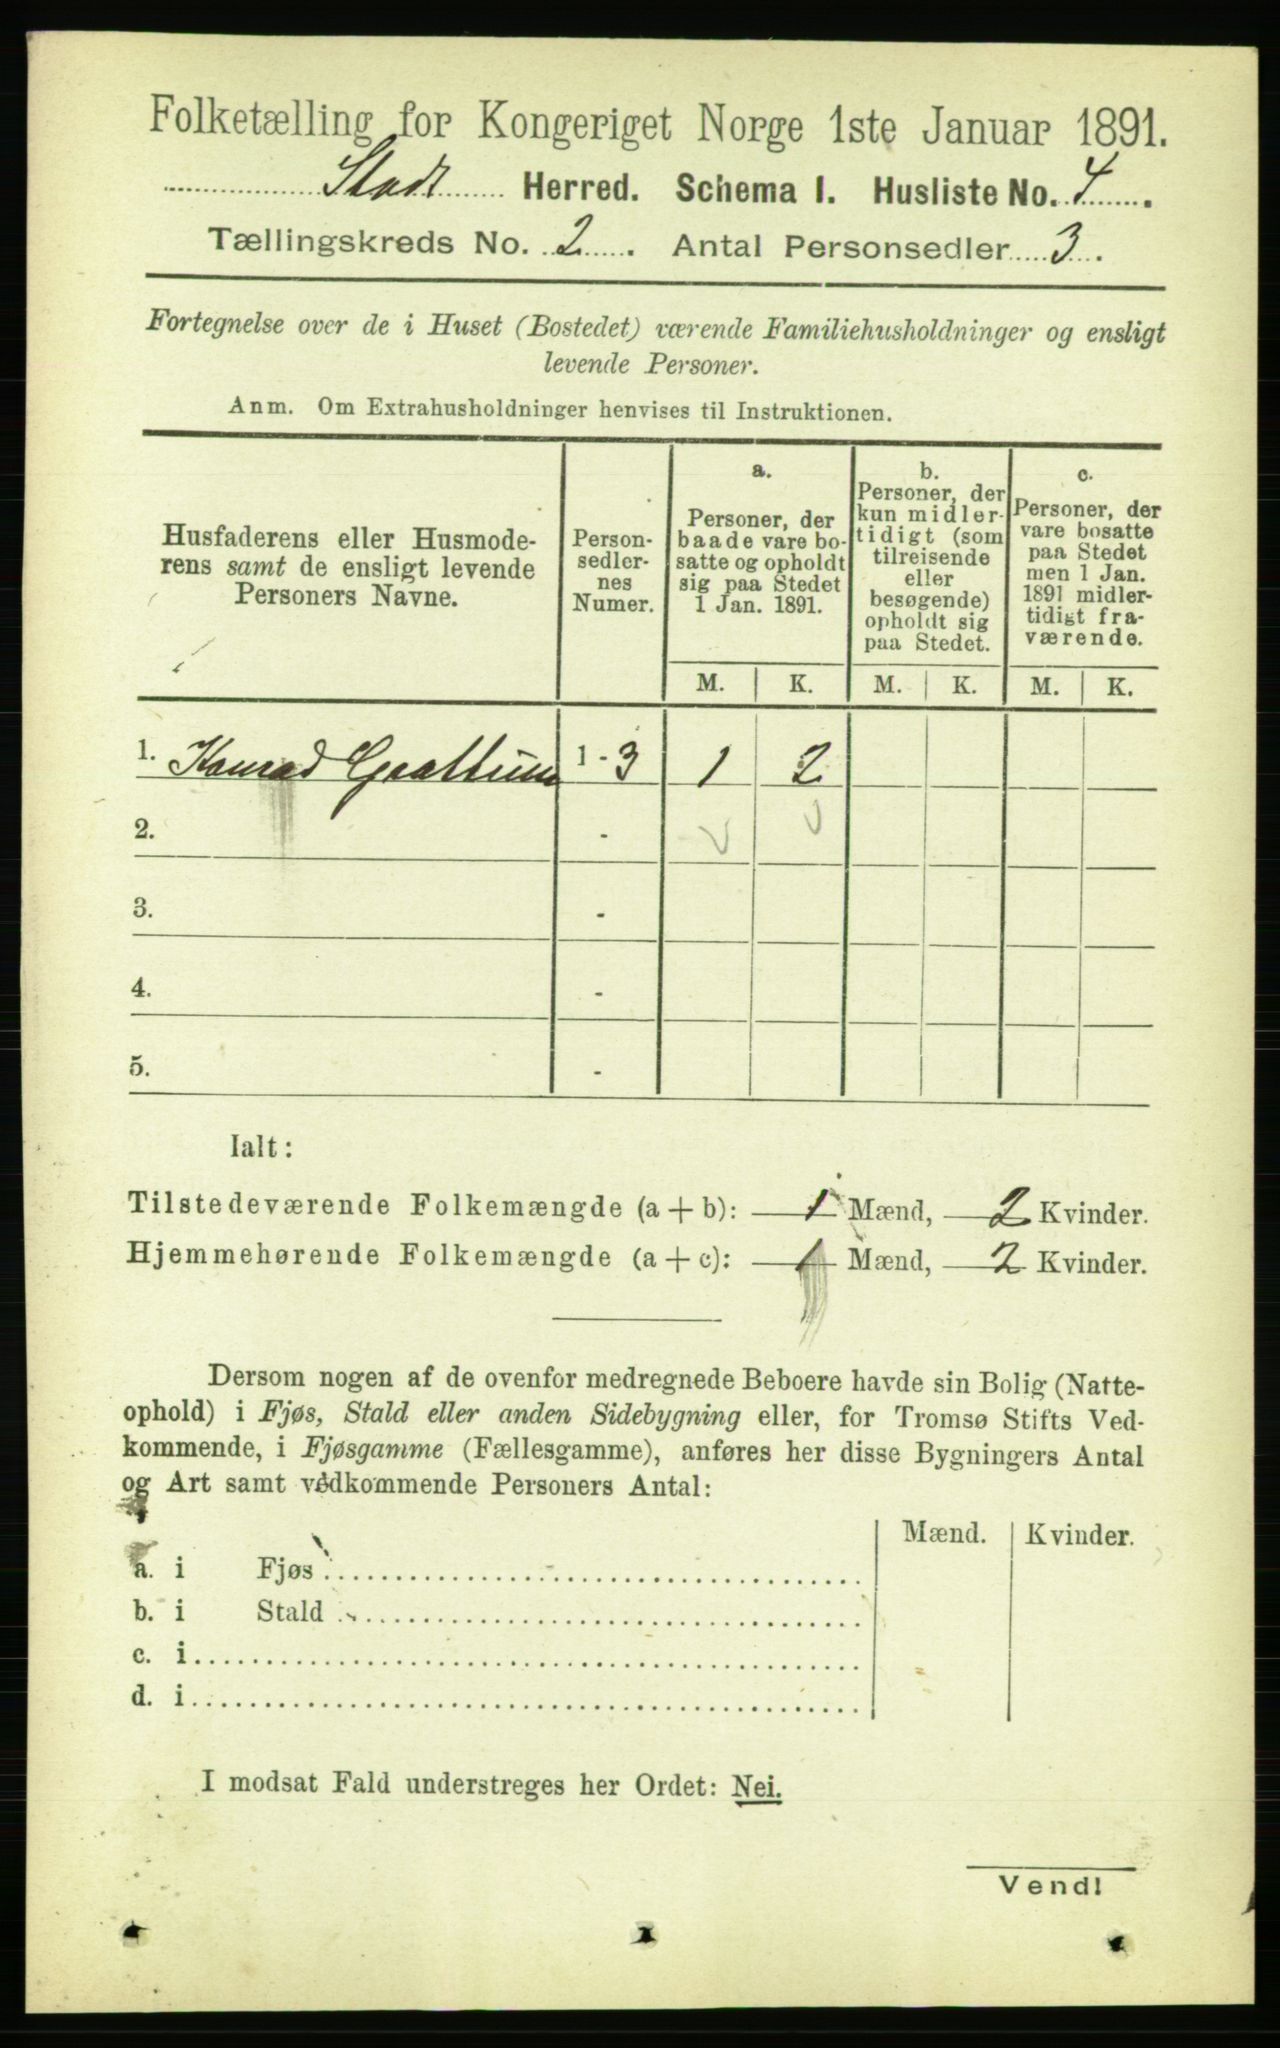 Folketælling for Kongeriget Norge 1ste Januar 1891.
Stadt Herred. Schema I. Husliste No. 4.
Tællingskreds No. 2. Antal Personsedler 3.
Fortegnelse over de i Huset (Bostedet) værende Familiehusholdninger og ensligt
levende Personer.
Anm. Om Extrahusholdninger henvises til Instruktionen.
Husfaderens eller Husmode-
rens samt de ensligt levende
Personers Navne.
Person-
sedler-
nes
Numer.
a.
Personer, der
baade vare bo-
satte og opholdt
sig paa Stedet
1 Jan. 1891.
b.
Personer, der
kun midler-
tidigt (som
tilreisende
eller
besøgende)
opholdt sig
paa Stedet.
c.
Personer, der
vare bosatte
paa Stedet
men 1 Jan.
1891 midler-
tidigt fra-
værende.
M. K. M. K. M. K.
1. Konrad 1 - 3 1 2
2. -
3. -
4. -
5. -
Ialt:
Tilstedeværende Folkemængde (a + b): 1 Mænd, 2 Kvinder.
Hjemmehørende Folkemængde (a + c): 1 Mænd, 2 Kvinder.
Dersom nogen af de ovenfor medregnede Beboere havde sin Bolig (Natte-
ophold) i Fjøs, Stald eller anden Sidebygning eller, for Tromsø Stifts Ved-
kommende, i Fjøsgamme (Fællesgamme), anføres her disse Bygningers Antal
og Art samt vedkommende Personers Antal:
Mænd. Kvinder.
a. i Fjøs
b. i Stald
c. i
d. i
I modsat Fald understreges her Ordet: Nei.
Vend!